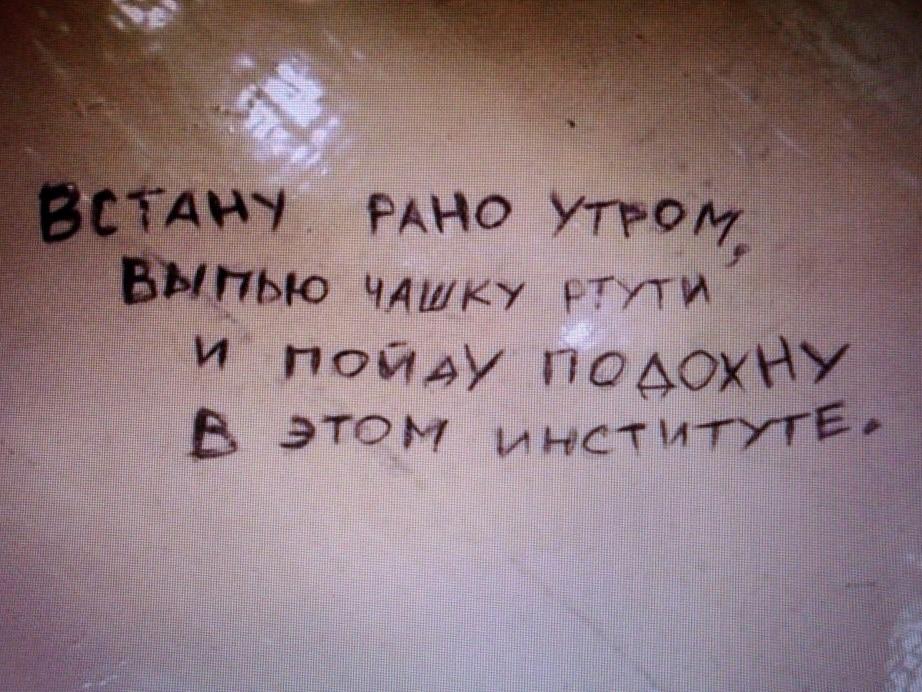 ВСТАНУ РАНО УТРОМ,
ВЫПЬЮ ЧАШКУ РТУТИ
И ПОЙДУ ПОДОХНУ
В ЭТОМ ИНСТИТУТЕ.